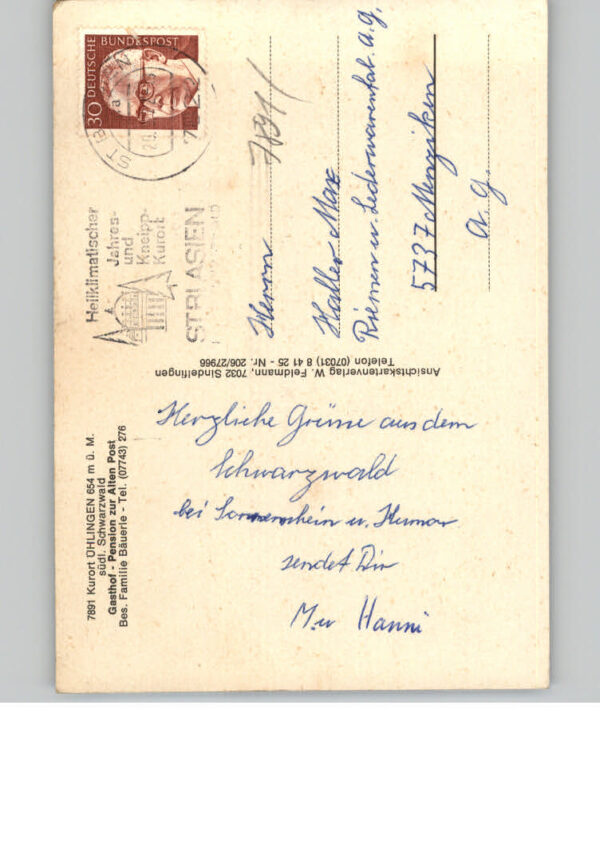 7891 Kurort ÜHLINGEN 654 m ü. M.
südl. Schwarzwald
Gasthof - Pension zur Alten Post
Bes. Familie Bäuerle - Tel. (07743) 276
Herzliche Grüsse aus dem
Schwarzwald
bei Sonnenschein u. Humor
sendet Dir
M. u Hanni
Ansichtskartenverlag W. Feldmann, 7032 Sindelfingen
Telefon (07031) 8 41 25 - Nr. 206/27966
Heilklimatischer
Jahres-
und
Kneipp-
Kurort
ST BLASIEN
30 DEUTSCHE BUNDESPOST
7891
Herrn
Haller Max
Riemen u. Lederwarenfat. A.G.
5737 Menziken
A. G.